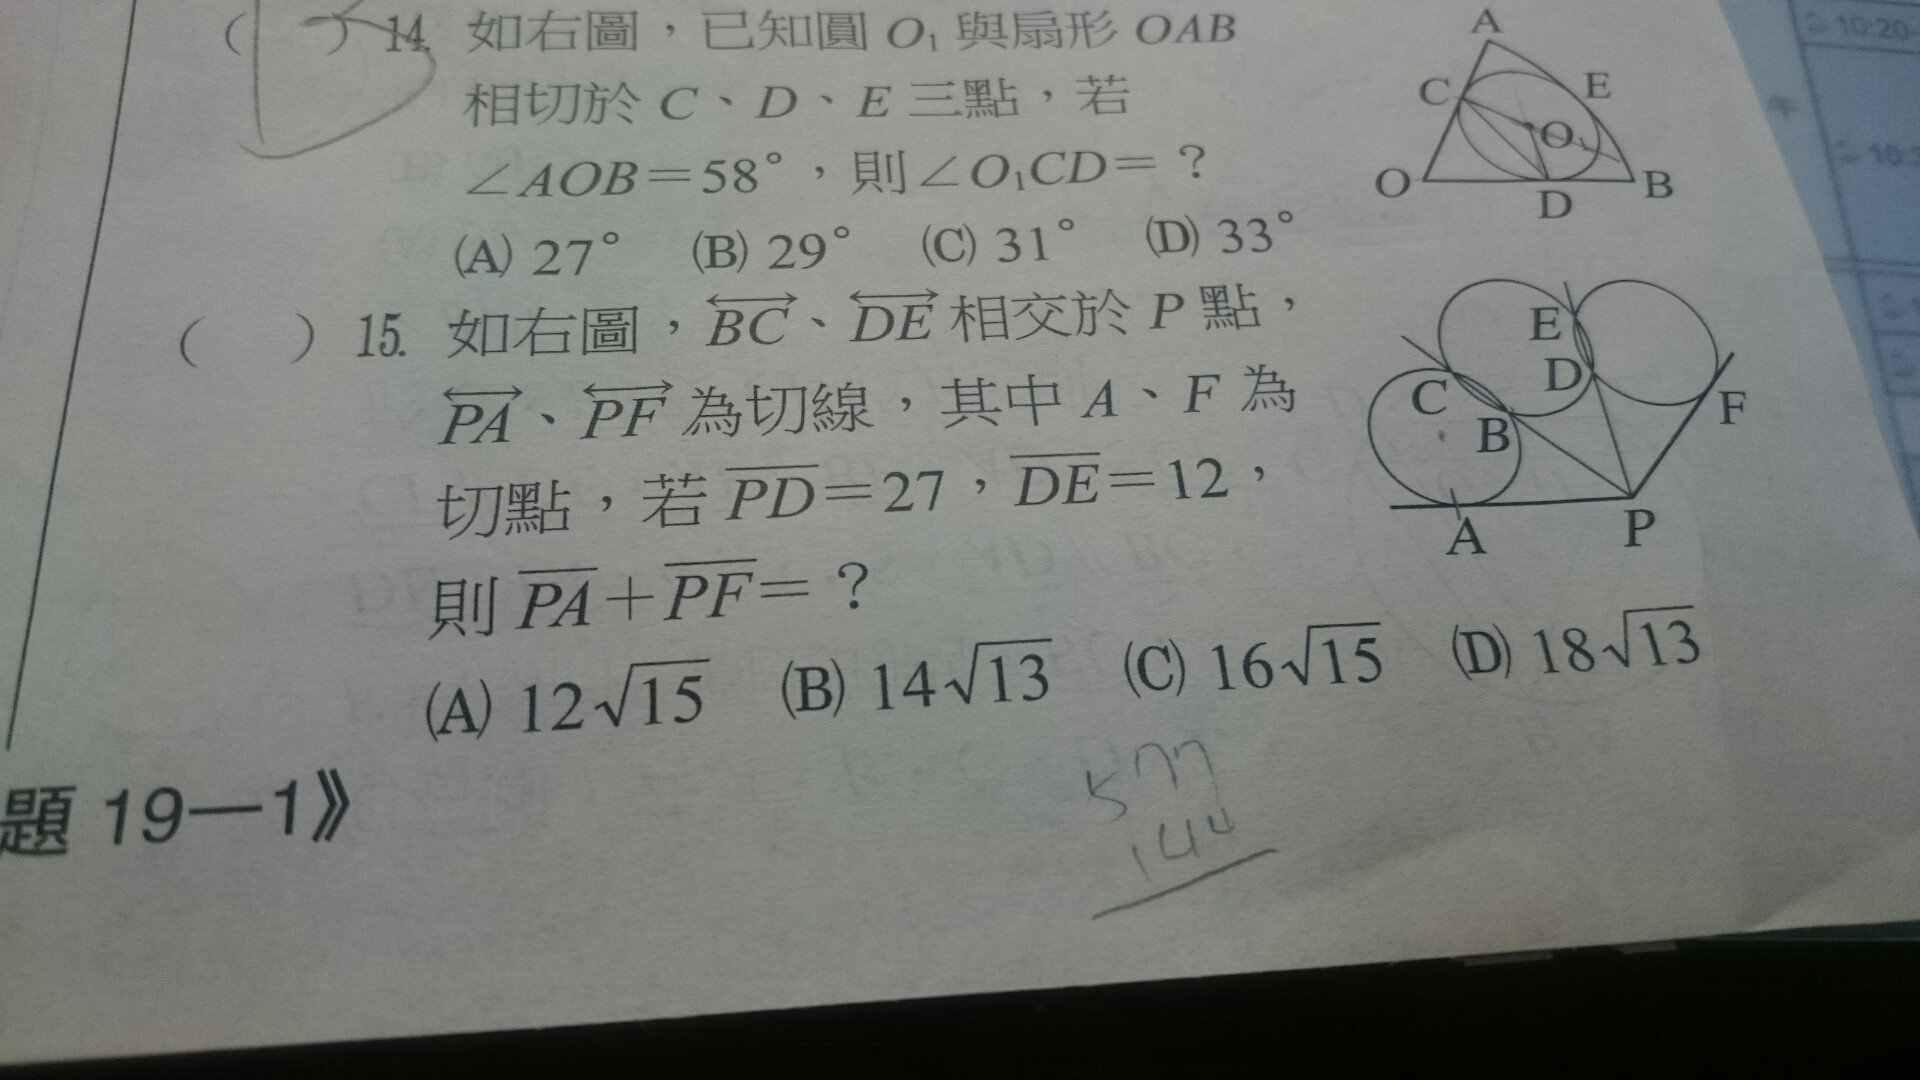 ( ) 14. 如右圖，已知圓 O₁ 與扇形 OAB
相切於 C、D、E 三點，若
∠AOB＝58°，則∠O₁CD＝？
(A) 27° (B) 29° (C) 31° (D) 33°
A
C
E
O₁
O
D
B
( ) 15. 如右圖，BC、DE 相交於 P 點，
PA、PF 為切線，其中 A、F 為
切點，若 PD＝27，DE＝12，
則 PA＋PF＝？
(A) 12√15 (B) 14√13 (C) 16√15 (D) 18√13
E
D
C
B
F
A
P
577
144
題 19－1》
10:20